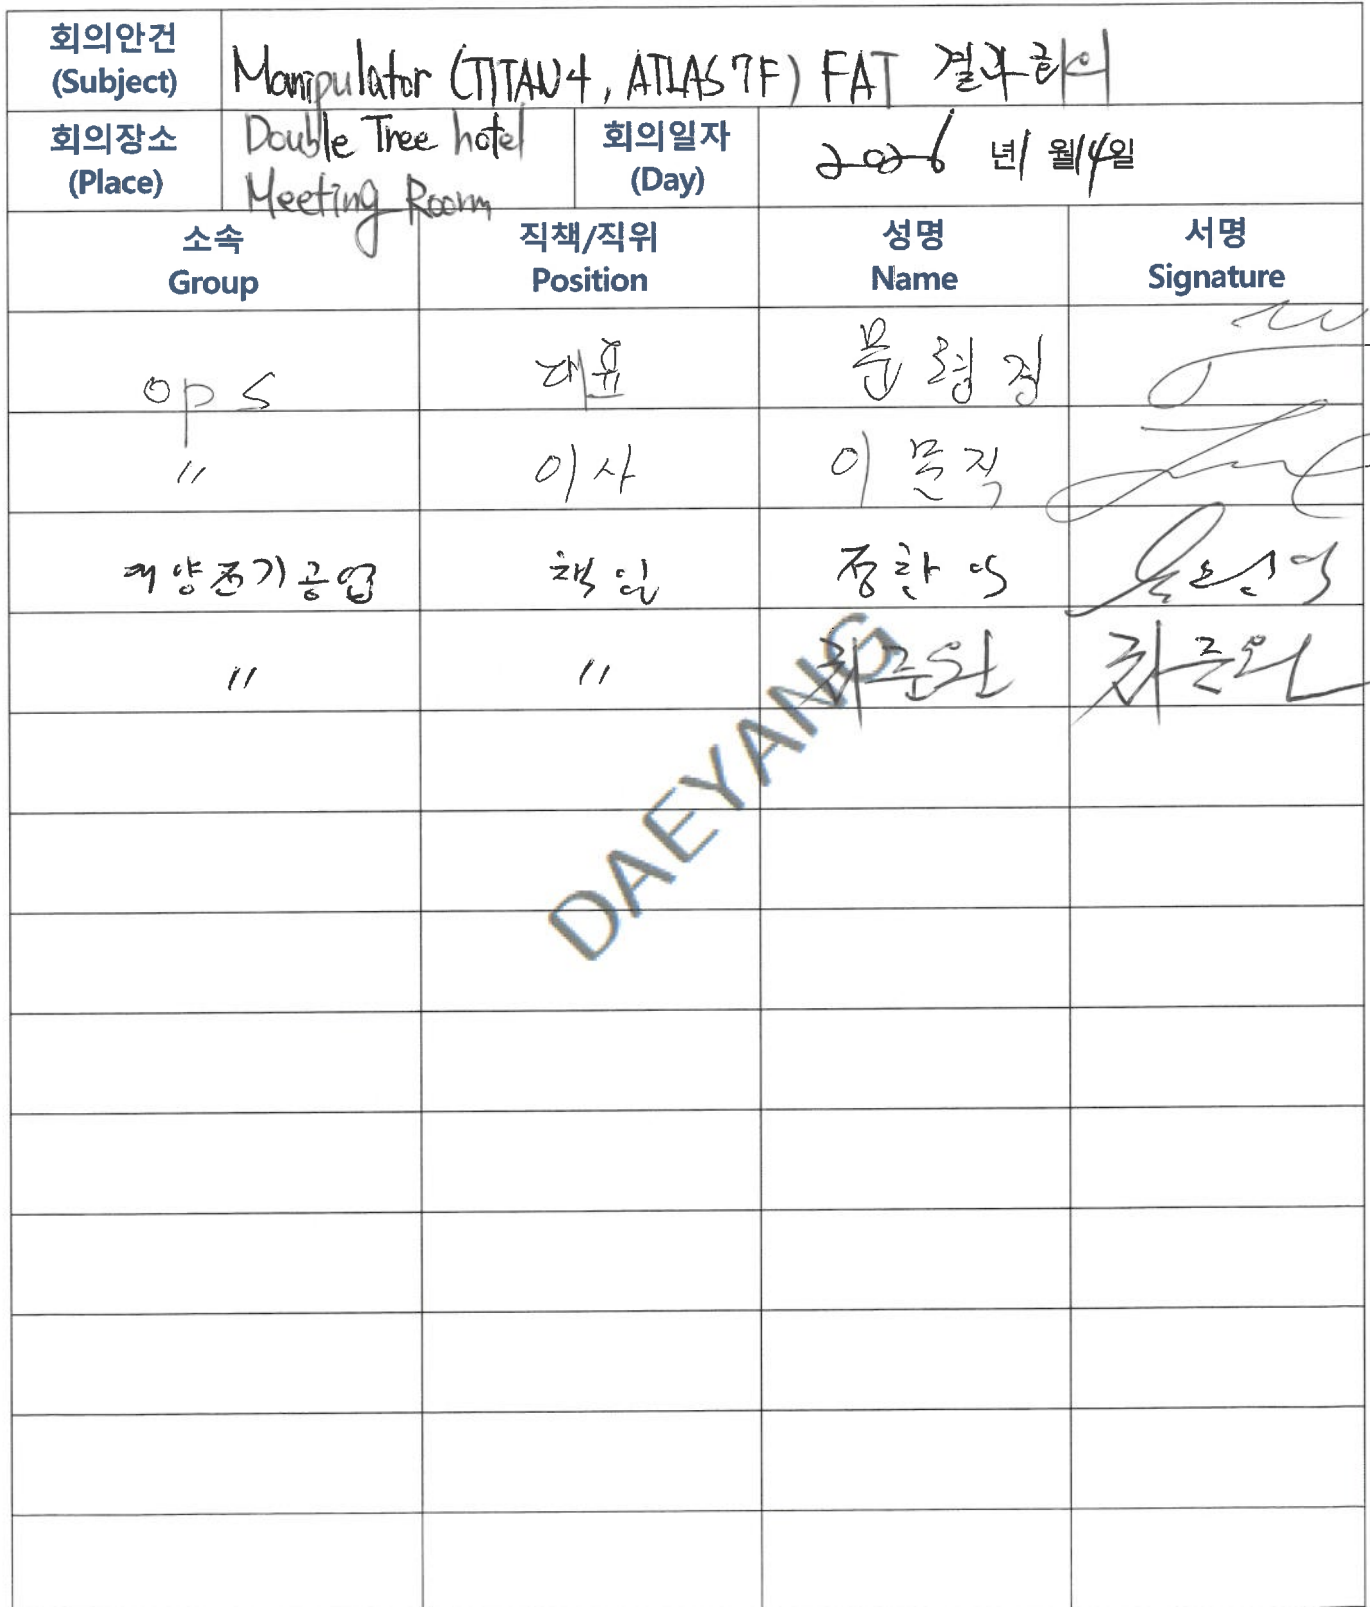 회의안건
(Subject)
Manipulator (TITAN4, ATLAS7F) FAT 결과회의
회의장소
(Place)
Double Tree hotel
Meeting Room
회의일자
(Day)
2026 년 1 월 14일
소속
Group
직책/직위
Position
성명
Name
서명
Signature
ops 대표 문
〃 이사 이문직
대양전기공업 책임 정한
〃 〃 최준완 최준완
DAEYANG